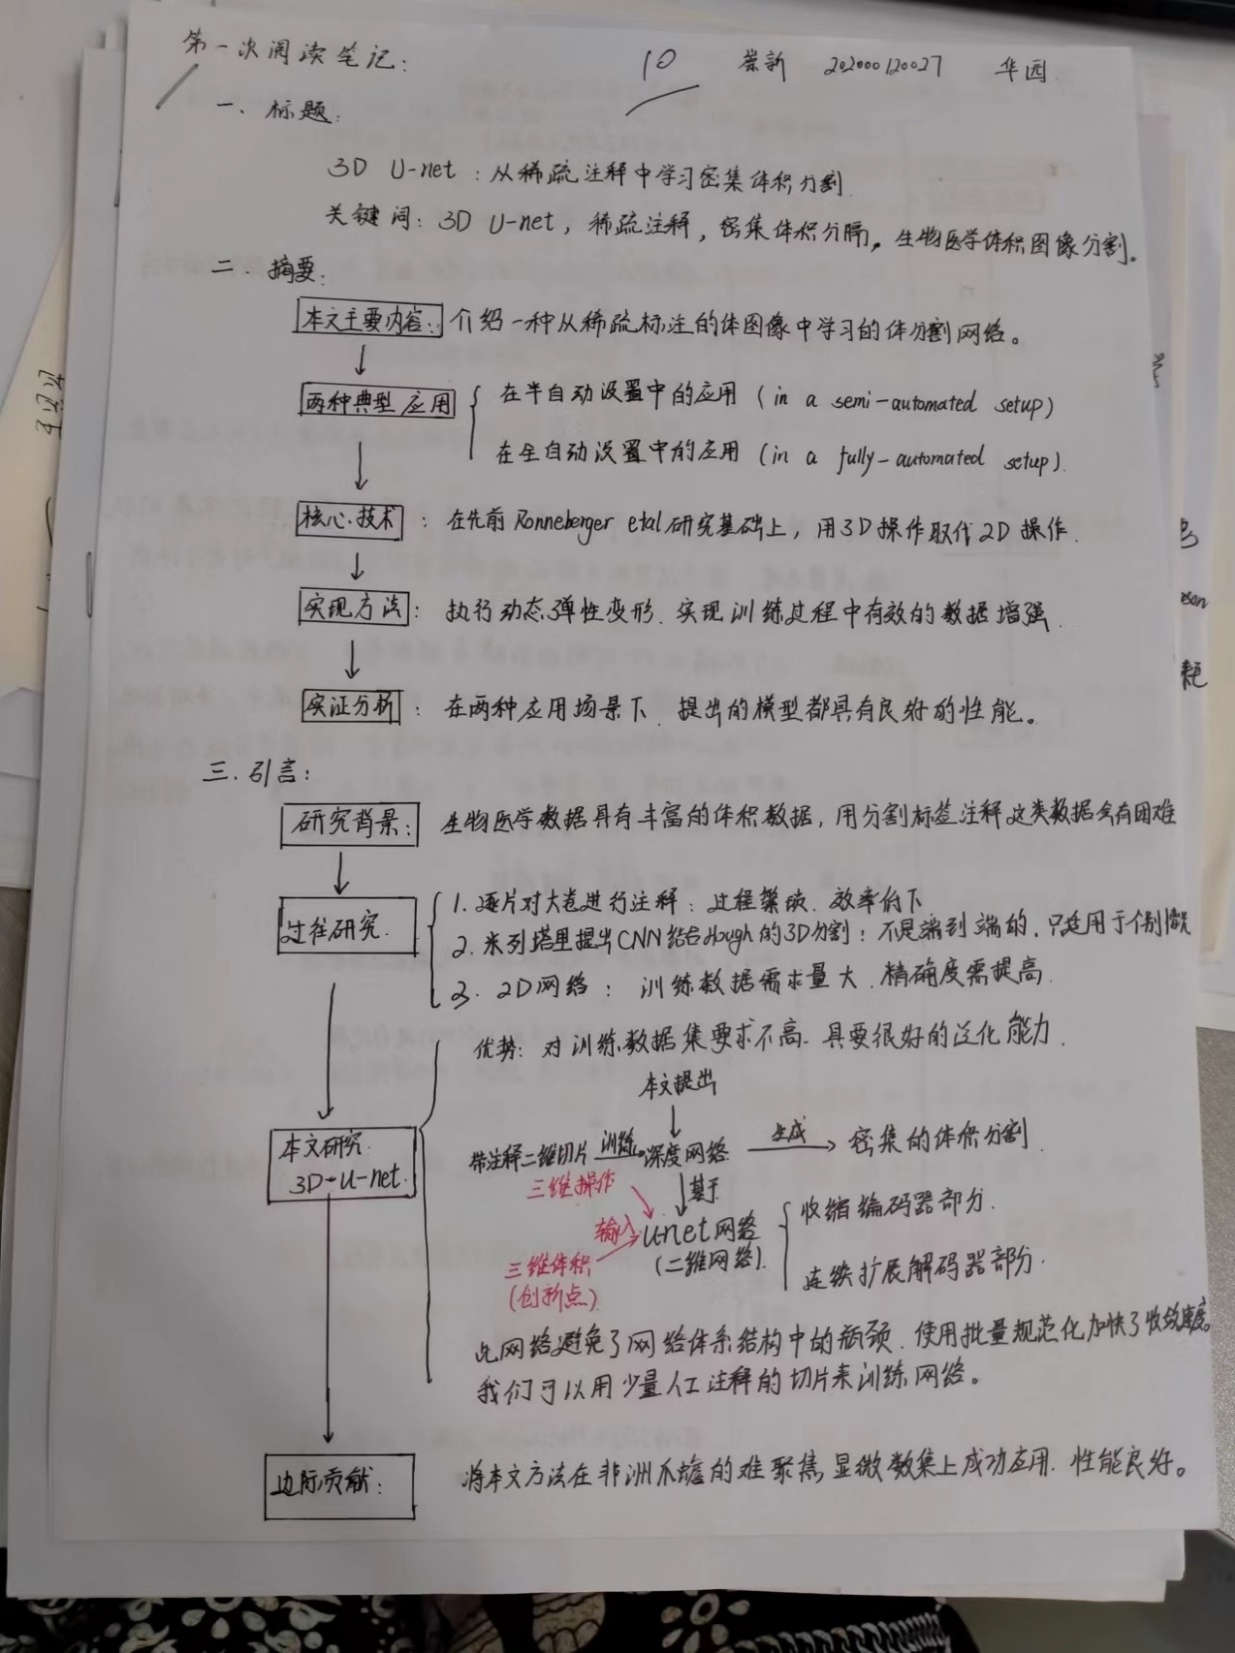 第一次阅读笔记：
10 崇新 202000120027 华园
一、标题：
3D U-net：从稀疏注释中学习密集体积分割
关键词：3D U-net，稀疏注释，密集体积分隔，生物医学体积图像分割。
二．摘要：
本文主要内容：介绍一种从稀疏标注的体图像中学习的体分割网络。
两种典型应用
在半自动设置中的应用（in a semi-automated setup）
在全自动设置中的应用（in a fully-automated setup）.
核心技术：在先前 Ronneberger etal 研究基础上，用3D操作取代2D操作．
实现方法：执行动态弹性变形．实现训练过程中有效的数据增强．
实证分析：在两种应用场景下．提出的模型都具有良好的性能。
三．引言：
研究背景：生物医学数据具有丰富的体积数据，用分割标签注释这类数据会有困难
过往研究．
1. 逐片对大卷进行注释：过程繁琐．效率低下
2. 米列塔里提出CNN结合Hough的3D分割：不是端到端的．只适用于个别情况
3. 2D网络：训练数据需求量大．精确度需提高．
优势：对训练数据集要求不高．具要很好的泛化能力．
本文提出
本文研究：
3D-U-net.
带注释二维切片 训练 深度网络 生成 密集的体积分割
三维操作 基于
输入 U-net网络
收缩编码器部分．
三维体积 (二维网络)．
(创新点)
连续扩展解码器部分．
此网络避免了网络体系结构中的瓶颈．使用批量规范化加快了收敛速度．
我们可以用少量人工注释的切片来训练网络。
边际贡献：将本文方法在非洲爪蟾的难聚焦显微数集上成功应用．性能良好。